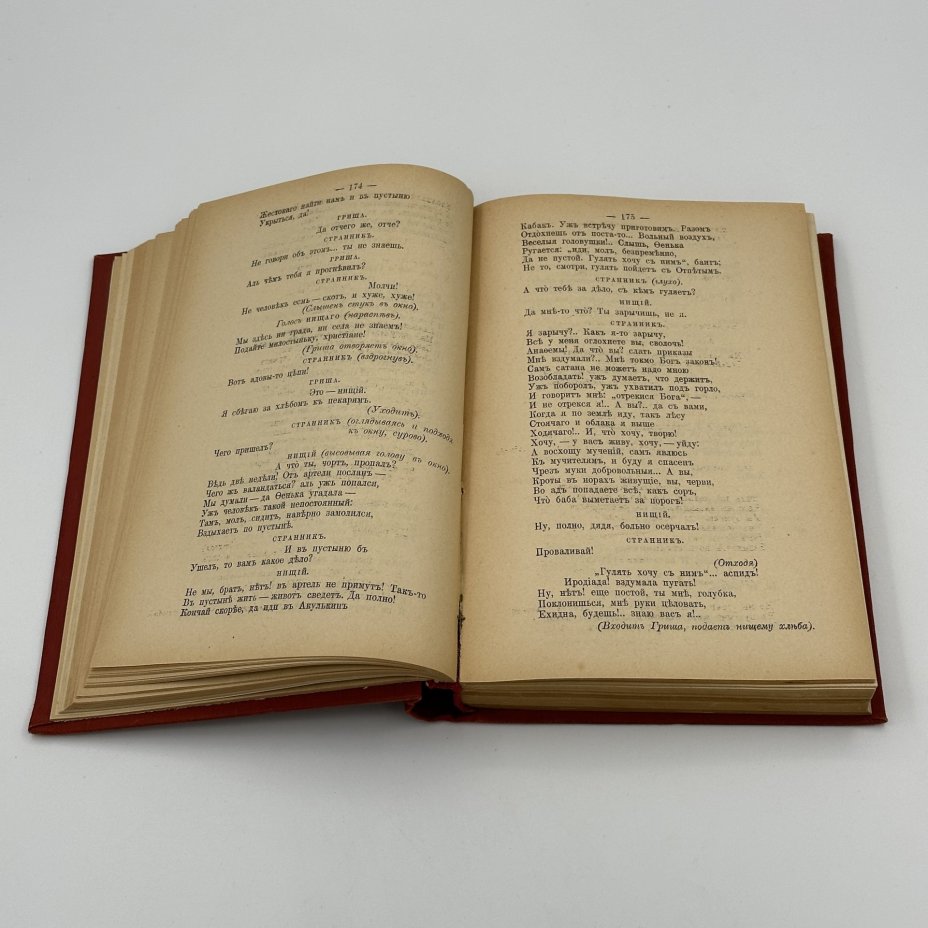 — 174 —
Жестоваго найти намъ и въ пустыню
Укрыться, да!
ГРИША.
Да отчего же, отче?
СТРАННИКЪ.
Не говори объ этомъ... ты не знаешь.
ГРИША.
Аль чѣмъ тебя я прогнѣвилъ?
СТРАННИКЪ.
Молчи!
Не человѣкъ есмь — скотъ, и хуже, хуже!
(Слышенъ стукъ въ окно).
Голосъ НИЩАГО (нараспѣвъ).
Мы здѣсь ни града, ни села не знаемъ!
Подайте милостыньку, христіане!
(Гриша отворяетъ окно).
СТРАННИКЪ (вздрогнувъ).
Вотъ адовы-то цѣпи!
ГРИША.
Это — нищій.
Я сбѣгаю за хлѣбомъ къ пекарямъ.
(Уходитъ).
СТРАННИКЪ (оглядываясь и подходя
къ окну, сурово).
Чего пришелъ?
НИЩІЙ (высовывая голову въ окно).
А что ты, чортъ, пропалъ?
Вѣдь двѣ недѣли! Отъ артели посланъ —
Чего жъ валандаться? аль ужъ попался,
Мы думали — да Ѳенька угадала —
Ужъ человѣкъ такой непостоянный:
Тамъ, молъ, сидитъ, навѣрно замолился,
Вздыхаетъ по пустынѣ.
СТРАННИКЪ.
И въ пустыню бъ
Ушелъ, то вамъ какое дѣло?
НИЩІЙ.
Не мы, братъ, нѣтъ! въ артель не примутъ! Такъ-то
Въ пустынѣ жить — животъ сведетъ. Да полно!
Кончай скорѣе, да иди въ Акулькинъ
— 175 —
Кабакъ. Ужъ встрѣчу приготовимъ. Разомъ
Отдохнешь отъ поста-то... Вольный воздухъ,
Веселыя головушки!.. Слышь, Ѳенька
Ругается: „иди, молъ, безпремѣнно,
Да не пустой. Гулять хочу съ нимъ“, баитъ;
Не то, смотри, гулять пойдетъ съ Отпѣтымъ.
СТРАННИКЪ (глухо).
А что̀ тебѣ за дѣло, съ кѣмъ гуляетъ?
НИЩІЙ.
Да мнѣ-то что̀? Ты зарычишь, не я.
СТРАННИКЪ.
Я зарычу?.. Какъ я-то зарычу,
Всѣ у меня оглохнете вы, сволочь!
Анаѳемы! Да что̀ вы? слать приказы
Мнѣ вздумали?.. Мнѣ токмо Богъ законъ!
Самъ сатана не можетъ надо мною
Возобладать! ужъ думаетъ, что держитъ,
Ужъ поборолъ, ужъ ухватилъ подъ горло,
И говоритъ мнѣ: „отрекися Бога“,—
И не отрекся я!.. А вы?.. да съ вами,
Когда я по землѣ иду, такъ лѣсу
Стоячаго и облака я выше
Ходячаго!.. И, что̀ хочу, творю!
Хочу, — у васъ живу, хочу, — уйду;
А восхощу мученій, самъ явлюсь
Къ мучителямъ, и буду я спасенъ
Чрезъ муки добровольныя... А вы,
Кроты въ норахъ живущіе, вы, черви,
Во адъ попадаете всѣ, какъ соръ,
Что̀ баба выметаетъ за порогъ!
НИЩІЙ.
Ну, полно, дядя, больно осерчалъ!
СТРАННИКЪ.
Проваливай!
(Отходя)
„Гулять хочу съ нимъ“... аспидъ!
Иродіада! вздумала пугать!
Ну, нѣтъ! еще постой, ты мнѣ, голубка,
Поклонишься, мнѣ руки цѣловать,
Ехидна, будешь!.. знаю васъ я!..
(Входитъ Гриша, подаетъ нищему хлѣба).